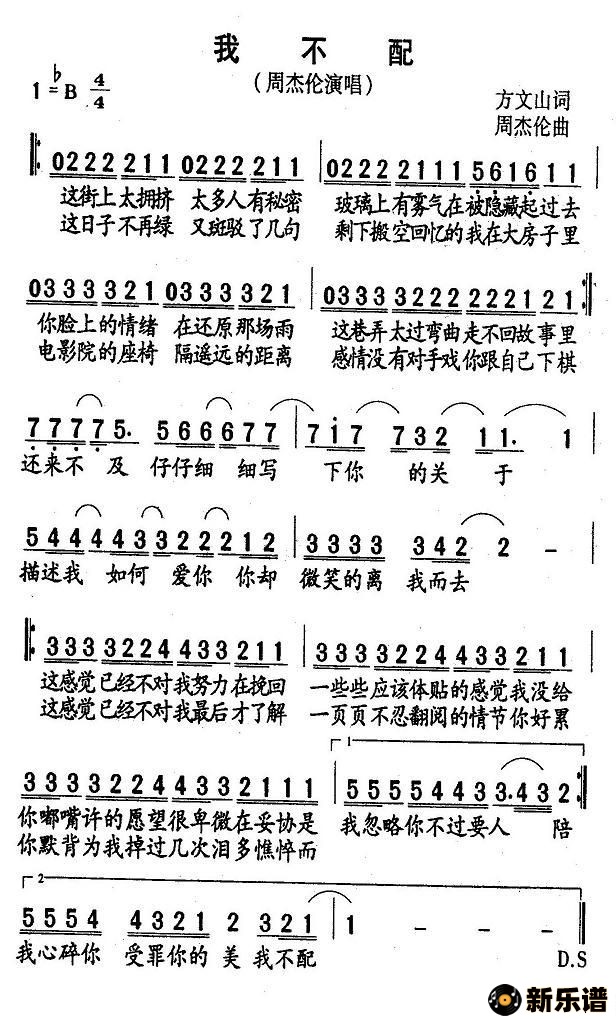 我 不 配
(周杰伦演唱)
1=♭B 4/4
方文山词
周杰伦曲
0222211 0222211 0222 2111 561611
这街上太拥挤 太多人有秘密 玻璃上有雾气在被隐藏起过去
这日子不再绿 又斑驳了几句 剩下搬空回忆的我在大房子里
0333321 0333321 0333 3222 222121
你脸上的情绪 在还原那场雨 这巷弄太过弯曲走不回故事里
电影院的座椅 隔遥远的距离 感情没有对手戏你跟自己下棋
77775. 566677 717 732 11. 1
还来不 及 仔仔细 细写 下你 的关 于
5444433222212 3333 342 2 -
描述我 如何 爱你 你却 微笑的离 我而去
3333224433211 3333224433211
这感觉已经不对我努力在挽回 一些些应该体贴的感觉我没给
这感觉已经不对我最后才了解 一页页不忍翻阅的情节你好累
1
33332244332111 555554433.432
你嘟嘴许的愿望很卑微在妥协是 我忽略你不过要人 陪
你默背为我掉过几次泪多憔悴而
2
5554 4321 2 321 1 -
我心碎你 受罪你的 美 我不配 D.S
新乐谱